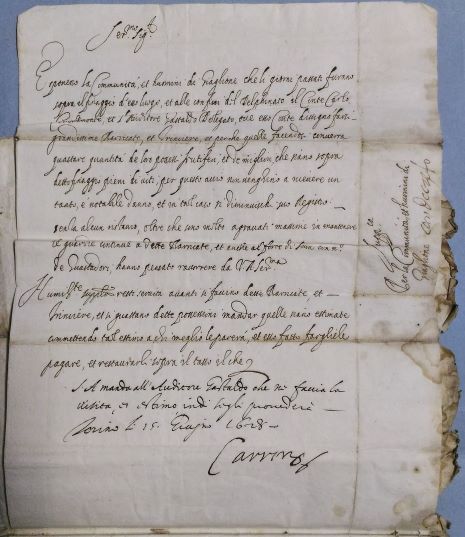 Ser.mo Sig.r
Espongono la Communità, et huomini di Giaglione che li giorni passati furano
sopra il Villaggio d'esso luogo, et alle confini del Delphinato il Conte Carlo
et l'Auditore Gastaldo Delegato, ove esso Conte dissegnò farsi
grandissime Barricate, et Trinciere, et perche quelle facendosi converrà
guastare quantità de loro possessi fruttiferi, et de migliori, che hanno sopra
detto Villaggio pieni di viti, per questo acciò non venghino a ricevere un
tanto, è notabile danno, et in tal caso si diminuischi suo Registro
senza alcun ristauro, oltre che sono molto agravati massime in mantenere
le guardie continue a dette Barricate, et anche al fare di
de Guastatori, hanno pensato raccorrere da V. A. Ser.ma
Humil.te supplicando resti servita avanti si faccino dette Barricate, et
Trinciere, et si guastano dette possessioni mandar quelle siano estimate
commettendo tal estimo a chi meglio le parerà, et esso fatto farghiele
pagare, et restaurarli sopra il tasso il che
S. A. manda all'Auditore Gastaldo che ne faccia la
visita, et estimo indi segli provederà
Torino li 15 Giugno 1628
Carron
Supp.ca
Per la Communità et huomini di
Giaglione